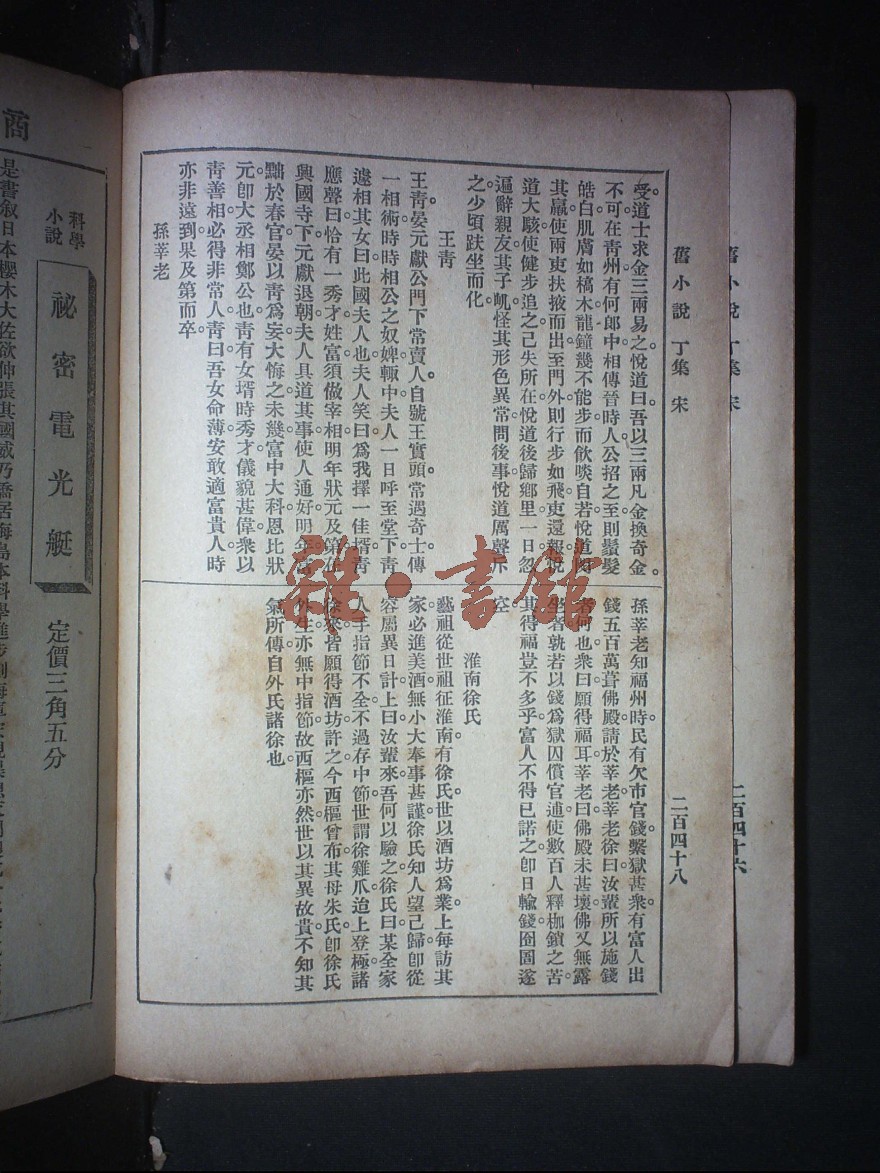 舊小說 丁集 宋
二百四十八
受道士求金三兩易之悅道曰吾以三兩凡金換奇金。
不可在靑州有何郎中相傳晉時人公招之至則鬚髮
皓白肌膚如槁木龍鐘幾不能步而飮啖自若悅道閔
其羸使兩吏扶掖而出至門外則行步如飛吏還報悅
道大駭使健步追之已失所在悅道後歸鄕里一日忽
遍辭親友其子㞦怪其形色異常問後事悅道厲聲斥
之少頃趺坐而化。
王靑
王靑晏元獻公門下常賣人自號王實頭。常遇奇士傳
一相術時時相公之奴婢輒中夫人一日呼至堂下靑
遽相其女曰此國夫人也夫人笑曰爲我擇一佳壻靑
應聲曰恰有一秀才姓富須做宰相明年狀元及第在
興國寺下元獻退朝夫人具道其事使人通好明年富
黜於春官晏以靑爲妄大悔之未幾富中大科恩比狀
元卽大丞相鄭公也靑有女壻時秀才儀貌甚偉衆以
靑善相必得非常人靑曰吾女命薄安敢適富貴人時
亦非遠到果及第而卒。
孫莘老
孫莘老知福州時民有欠市官錢繫獄甚衆。有富人出
錢五百萬葺佛殿請於莘老莘老徐曰汝輩所以施錢
者何也衆曰願得福耳莘老曰佛殿未甚壞佛又無露
坐者孰若以錢爲獄囚償官逋使數百人釋枷鎖之苦
其得福豈不多乎富人不得已諾之卽日輸錢囹圄遂
空。
淮南徐氏
藝祖從世祖征淮南。有徐氏世以酒坊爲業上每訪其
家必進美酒無小大奉事甚謹徐氏知人望已歸卽從
容屬異日計上曰汝輩來吾何以驗之徐氏曰某全家
人手指節不全不過存中節世謂徐雞爪迨上登極諸
徐來皆願得酒坊許之今西樞曾布其母朱氏卽徐氏
外生亦無中指節故西樞亦然世以其異故貴不知其
氣所傳自外氏諸徐也。
雜·書館
舊小說 丁集 宋
二百四十六
商
科學小說
祕密電光艇
定價三角五分
是書叙日本櫻木大佐欲伸張其國威乃僑居海島本科學進步